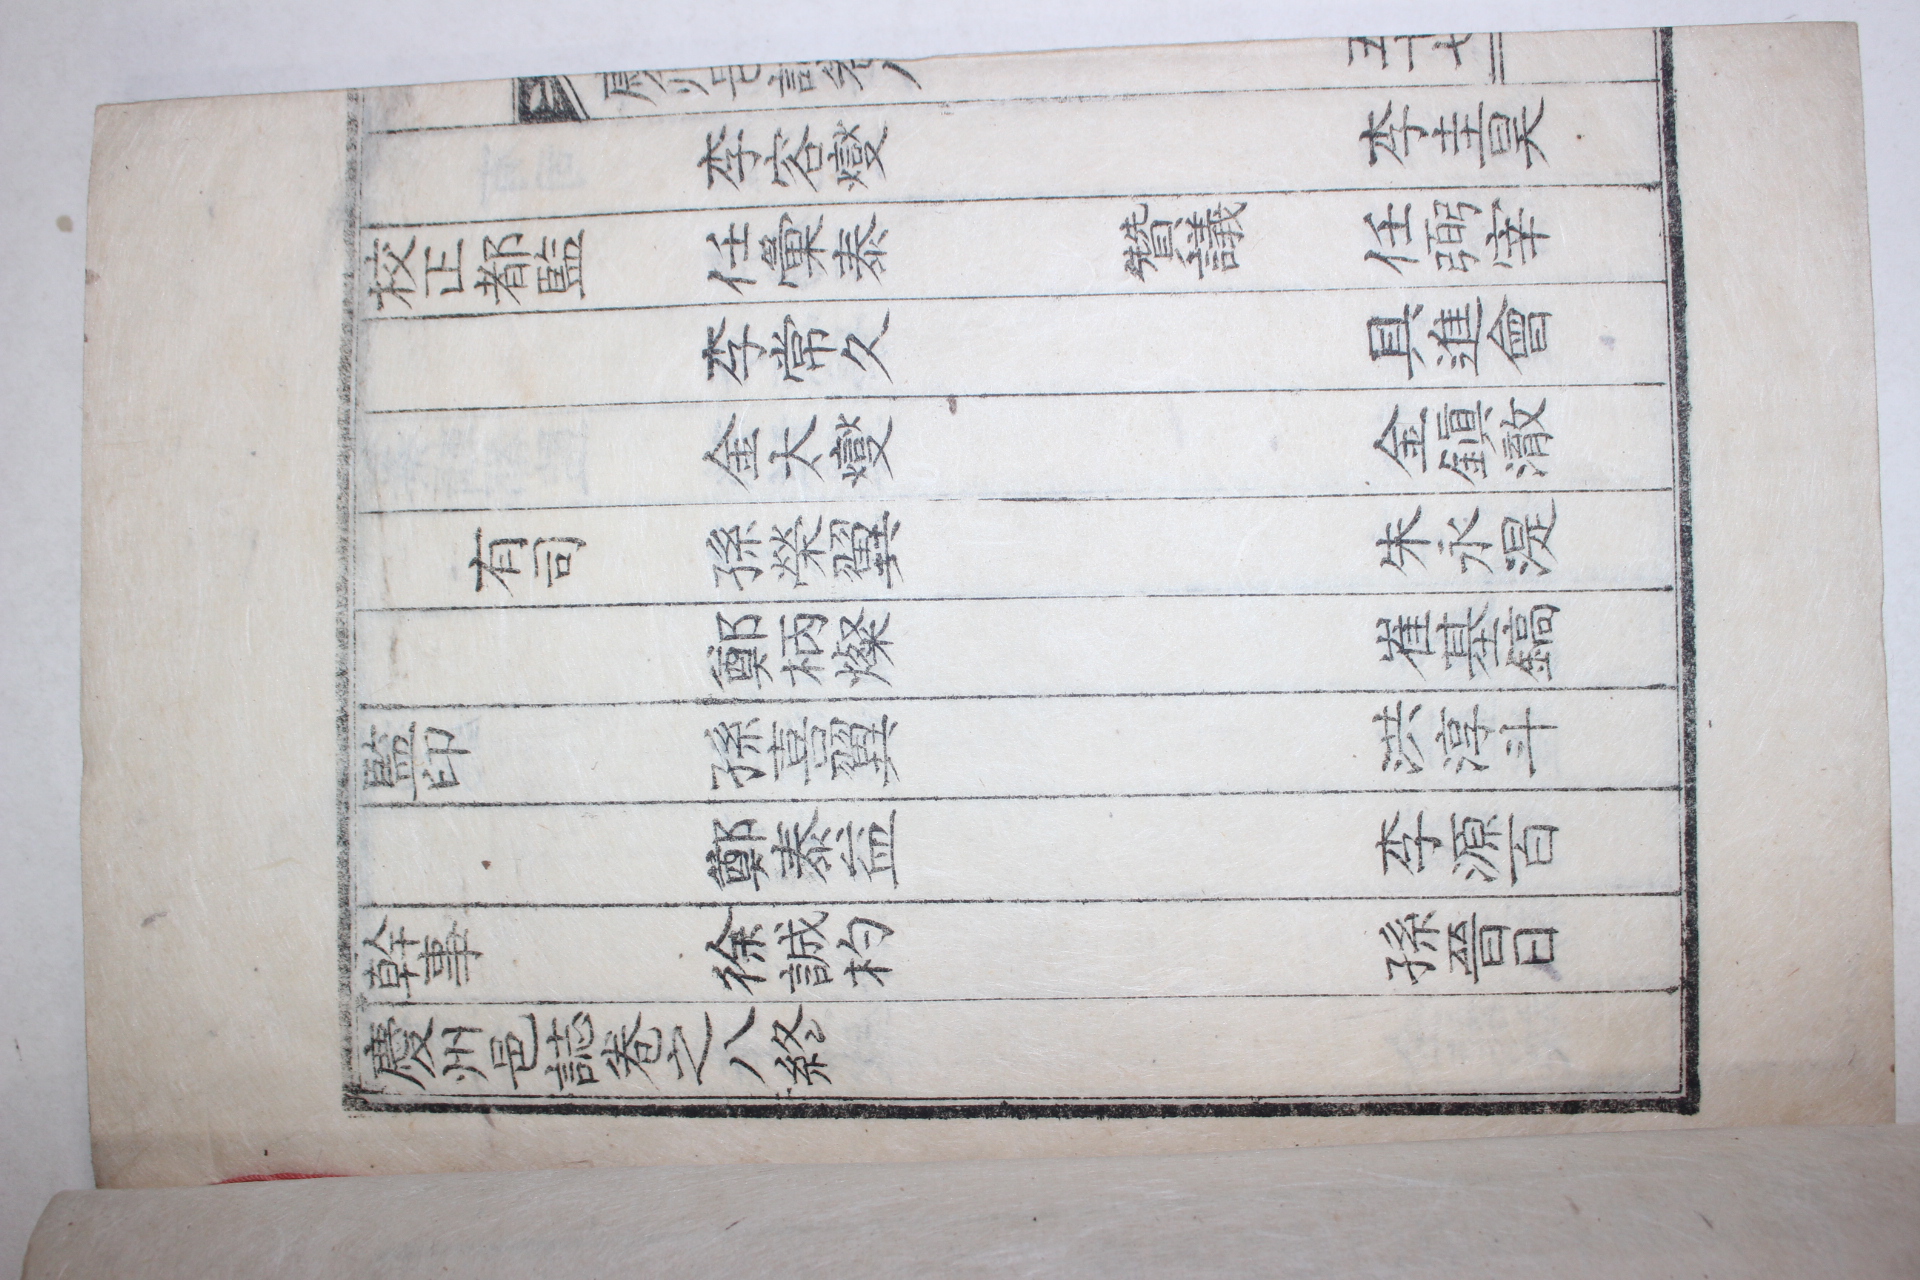 慶州邑誌卷八 五十七
李容燮 李圭昊
校正都監 任彙泰 贊議 任弼宰
李常久 具進會
金太燮 金鎭澈
有司 孫榮翼 朱永湜
鄭柄燦 崔基鎬
監印 孫喜翼 洪淳斗
鄭泰益 李源百
幹事 徐誠杓 孫晉日
慶州邑誌卷之八終